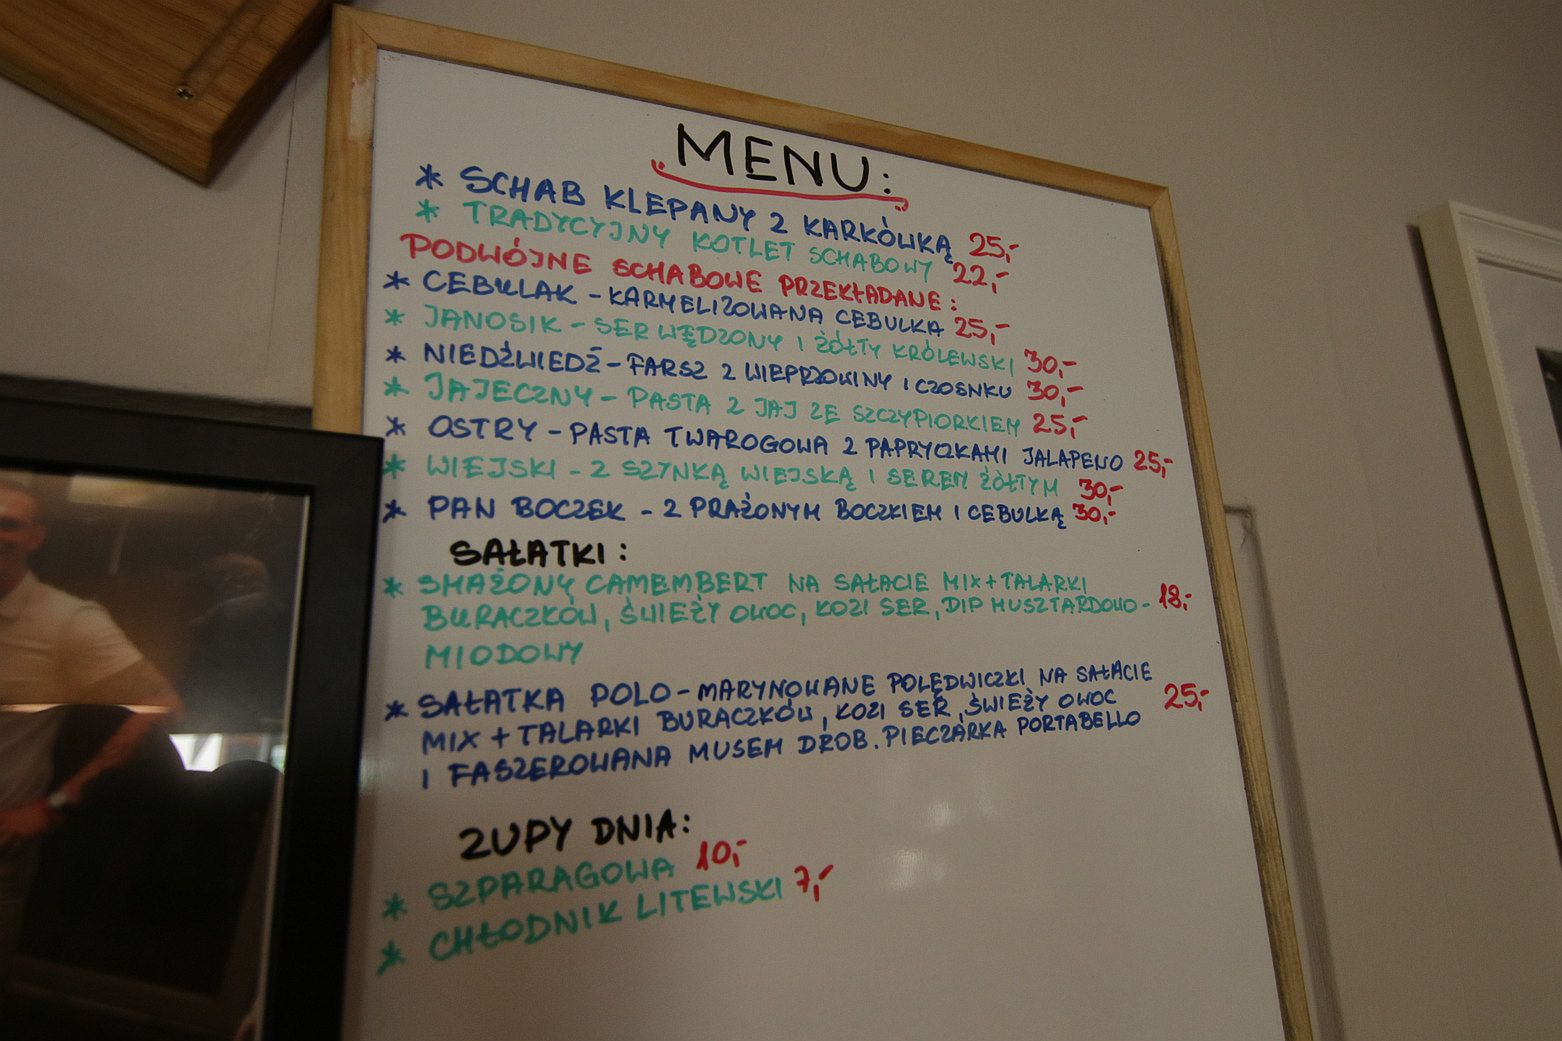 MENU:
* SCHAB KLEPANY Z KARKÓWKĄ 25,-
* TRADYCYJNY KOTLET SCHABOWY 22,-
PODWÓJNE SCHABOWE PRZEKŁADANE:
* CEBULAK - KARMELIZOWANA CEBULKA 25,-
* JANOSIK - SER WĘDZONY I ŻÓŁTY KRÓLEWSKI 30,-
* NIEDŹWIEDŹ - FARSZ Z WIEPRZOWINY I CZOSNKU 30,-
* JAJECZNY - PASTA Z JAJ ZE SZCZYPIORKIEM 25,-
* OSTRY - PASTA TWAROGOWA Z PAPRYCZKAMI JALAPENO 25,-
* WIEJSKI - Z SZYNKĄ WIEJSKĄ I SEREM ŻÓŁTYM 30,-
* PAN BOCZEK - Z PRAŻONYM BOCZKIEM I CEBULKĄ 30,-
SAŁATKI:
* SMAŻONY CAMEMBERT NA SAŁACIE MIX + TALARKI
BURACZKÓW, ŚWIEŻY OWOC, KOZI SER, DIP MUSZTARDOWO- 18,-
MIODOWY
* SAŁATKA POLO - MARYNOWANE POLĘDWICZKI NA SAŁACIE
MIX + TALARKI BURACZKÓW, KOZI SER, ŚWIEŻY OWOC 25,-
I FASZEROWANA MUSEM DROB. PIECZARKA PORTABELLO
ZUPY DNIA:
* SZPARAGOWA 10,-
* CHŁODNIK LITEWSKI 7,-